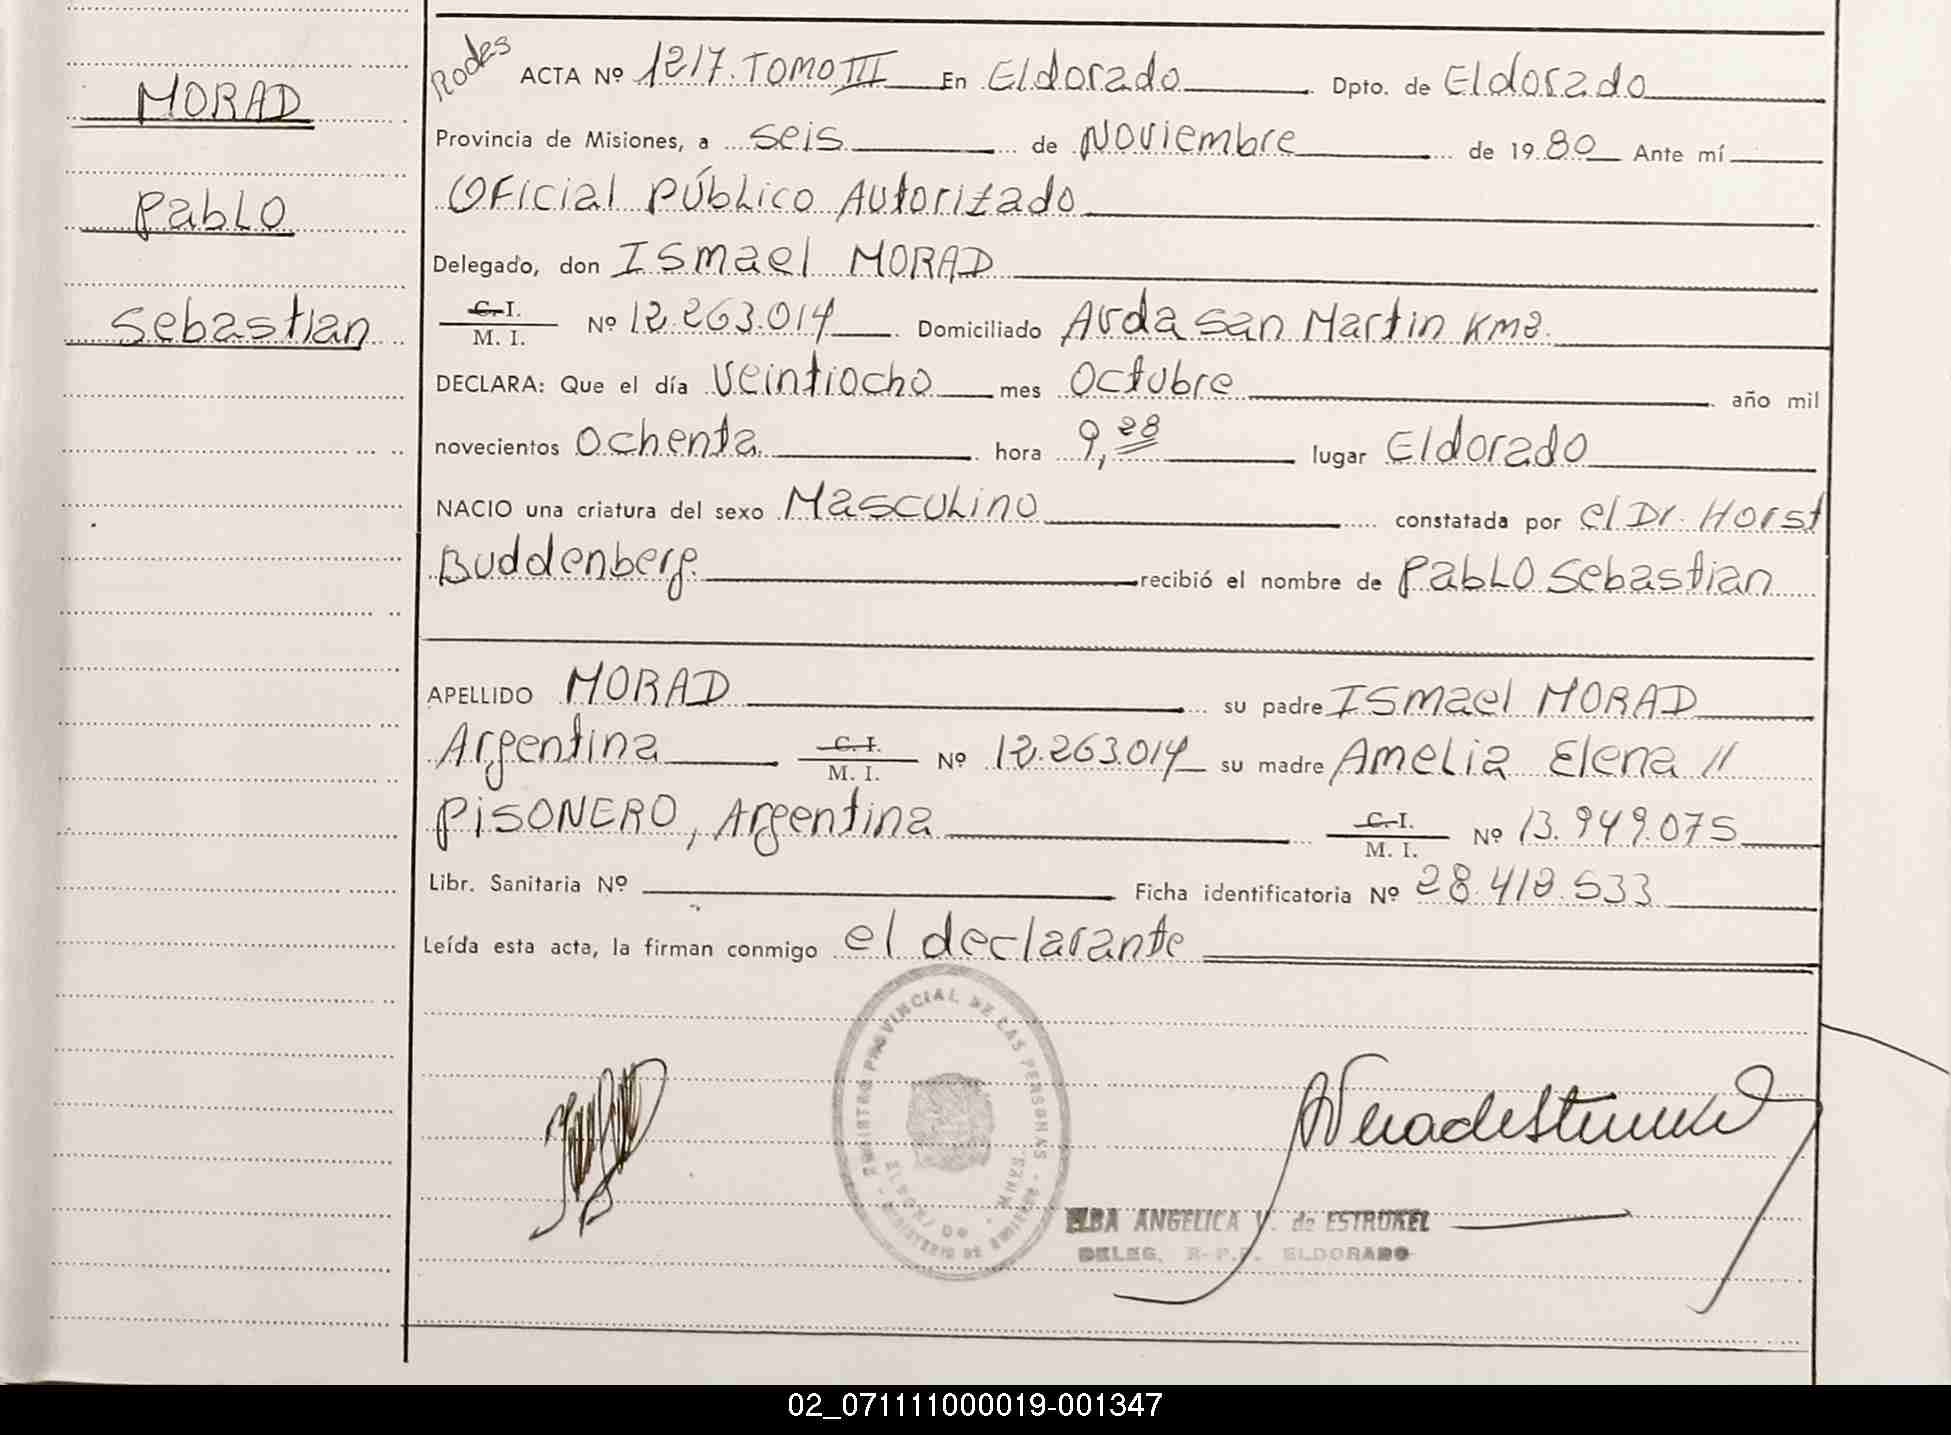 MORAD
Pablo
Sebastian
Rodes
ACTA Nº 1217. TOMO III En Eldorado Dpto. de Eldorado
Provincia de Misiones, a seis de Noviembre de 1980 Ante mí
Oficial Público Autorizado
Delegado, don Ismael MORAD
C.I. / M. I. Nº 12.263.014 Domiciliado Avda San Martin Km
DECLARA: Que el día veintiocho mes Octubre año mil
novecientos Ochenta hora 9,28 lugar Eldorado
NACIO una criatura del sexo Masculino constatada por el Dr. Horst
Buddenberg recibió el nombre de Pablo Sebastian
APELLIDO MORAD su padre Ismael MORAD
Argentina C.I. / M. I. Nº 12.263.014 su madre Amelia Elena //
PISONERO, Argentina C.I. / M. I. Nº 13.949.075
Libr. Sanitaria Nº Ficha identificatoria Nº 28.412.533
Leída esta acta, la firman conmigo el declarante
REGISTRO PROVINCIAL DE LAS PERSONAS - MINISTERIO DE
ELDORADO - MNES.
ELBA ANGELICA V. de ESTRUKEL
DELEG. R. P. P. ELDORADO
02_071111000019-001347